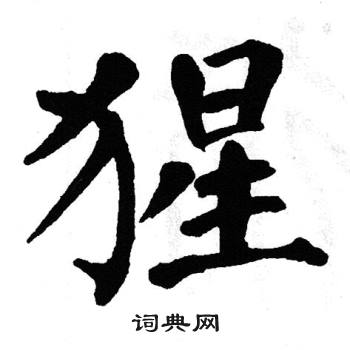 猩
词典网